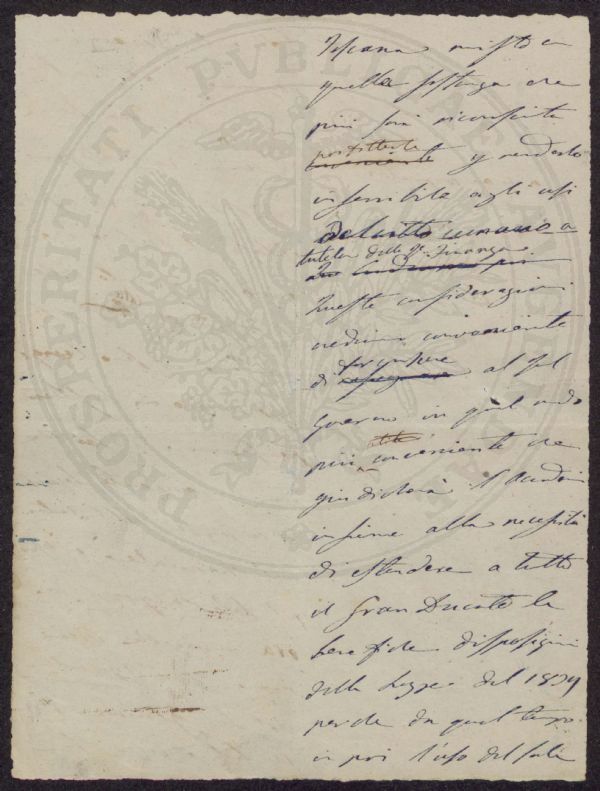 PROSPERITATI PVBLICAE AVGENDAE
Toscana misto a
quella sostanza che
più sarà riconosciuta
e renderlo
inservibile agli usi
a
tutela delle Finanze
Queste considerazioni
crediamo conveniente
di al
Governo in quel modo
più conveniente che
giudicherà l'Accademia
insieme alla necessità
di estendere a tutto
il Gran Ducato le
benefiche disposizioni
della Legge del 1834
perché da quel tempo
in poi l'uso del sale